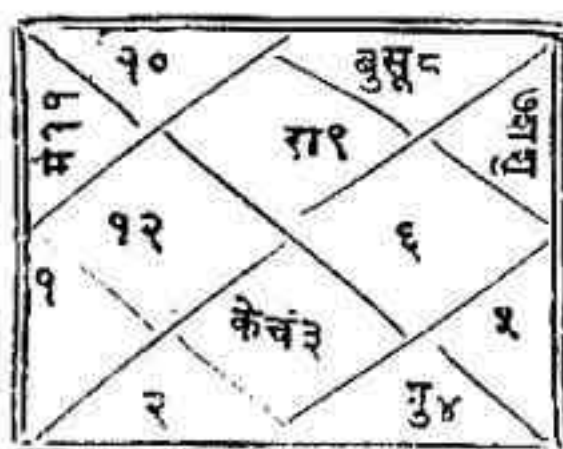 १०
बुसू८
मं११
रा९
७शशु
१२
६
१
केचं३
५
२
गु४